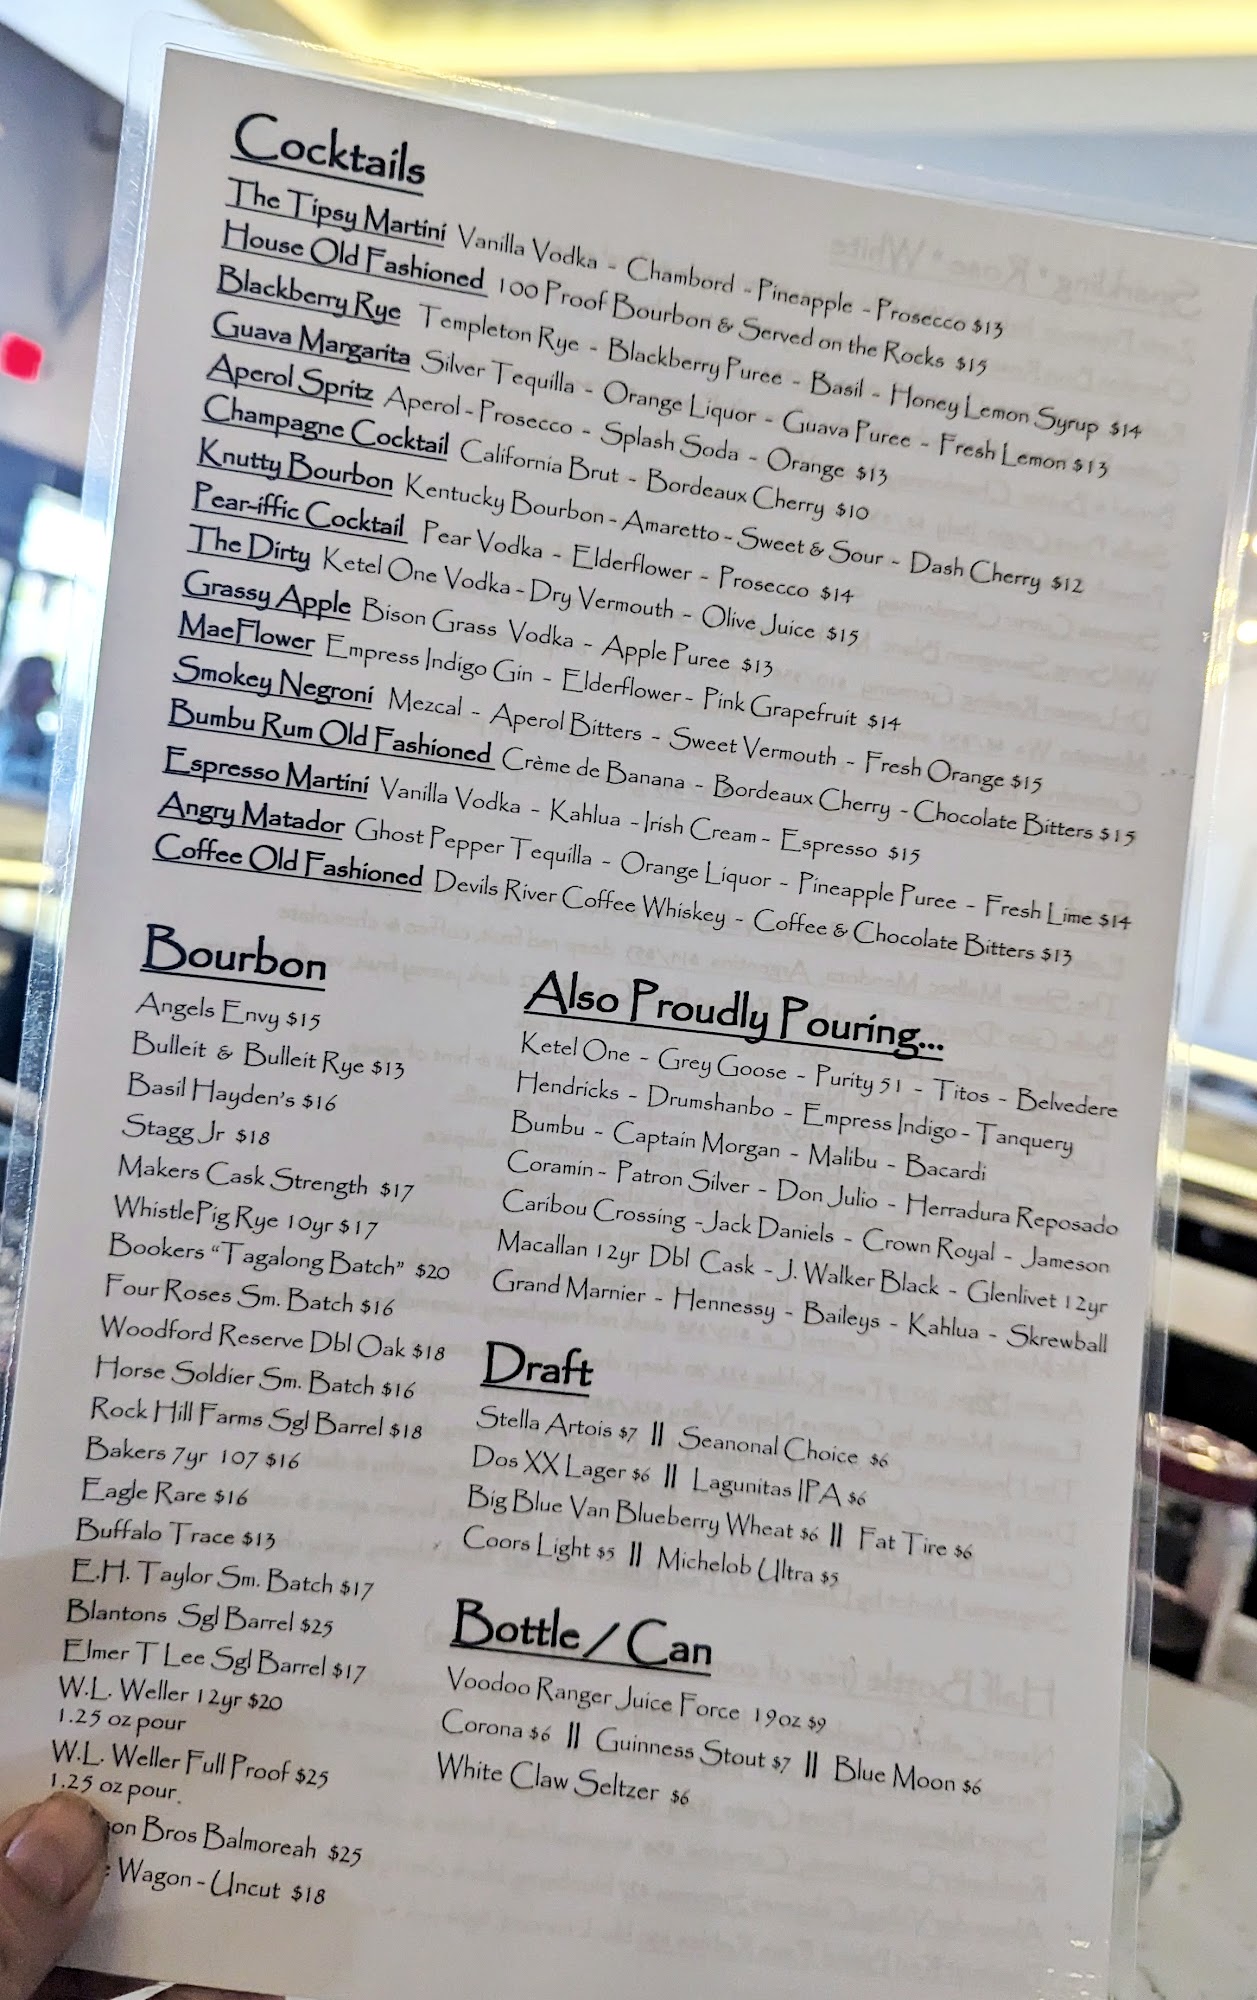 Cocktails
The Tipsy Martini Vanilla Vodka - Chambord - Pineapple - Prosecco $13
House Old Fashioned 100 Proof Bourbon & Served on the Rocks $15
Blackberry Rye Templeton Rye - Blackberry Puree - Basil - Honey Lemon Syrup $14
Guava Margarita Silver Tequilla - Orange Liquor - Guava Puree - Fresh Lemon $13
Aperol Spritz Aperol - Prosecco - Splash Soda - Orange $13
Champagne Cocktail California Brut - Bordeaux Cherry $10
Knutty Bourbon Kentucky Bourbon - Amaretto - Sweet & Sour - Dash Cherry $12
Pear-iffic Cocktail Pear Vodka - Elderflower - Prosecco $14
The Dirty Ketel One Vodka - Dry Vermouth - Olive Juice $15
Grassy Apple Bison Grass Vodka - Apple Puree $13
MaeFlower Empress Indigo Gin - Elderflower - Pink Grapefruit $14
Smokey Negroni Mezcal - Aperol Bitters - Sweet Vermouth - Fresh Orange $15
Bumbu Rum Old Fashioned Crème de Banana - Bordeaux Cherry - Chocolate Bitters $15
Espresso Martini Vanilla Vodka - Kahlua - Irish Cream - Espresso $15
Angry Matador Ghost Pepper Tequilla - Orange Liquor - Pineapple Puree - Fresh Lime $14
Coffee Old Fashioned Devils River Coffee Whiskey - Coffee & Chocolate Bitters $13
Bourbon
Angels Envy $15
Bulleit & Bulleit Rye $13
Basil Hayden's $16
Stagg Jr $18
Makers Cask Strength $17
WhistlePig Rye 10yr $17
Bookers "Tagalong Batch" $20
Four Roses Sm. Batch $16
Woodford Reserve Dbl Oak $18
Horse Soldier Sm. Batch $16
Rock Hill Farms Sgl Barrel $18
Bakers 7yr 107 $16
Eagle Rare $16
Buffalo Trace $13
E.H. Taylor Sm. Batch $17
Blantons Sgl Barrel $25
Elmer T Lee Sgl Barrel $17
W.L. Weller 12yr $20
1.25 oz pour
W.L. Weller Full Proof $25
1.25 oz pour.
Bros Balmoreah $25
Wagon - Uncut $18
Also Proudly Pouring...
Ketel One - Grey Goose - Purity 51 - Titos - Belvedere
Hendricks - Drumshanbo - Empress Indigo - Tanquery
Bumbu - Captain Morgan - Malibu - Bacardi
Coramin - Patron Silver - Don Julio - Herradura Reposado
Caribou Crossing - Jack Daniels - Crown Royal - Jameson
Macallan 12yr Dbl Cask - J. Walker Black - Glenlivet 12yr
Grand Marnier - Hennessy - Baileys - Kahlua - Skrewball
Draft
Stella Artois $7 || Seanonal Choice $6
Dos XX Lager $6 || Lagunitas IPA $6
Big Blue Van Blueberry Wheat $6 || Fat Tire $6
Coors Light $5 || Michelob Ultra $5
Bottle / Can
Voodoo Ranger Juice Force 19oz $9
Corona $6 || Guinness Stout $7 || Blue Moon $6
White Claw Seltzer $6